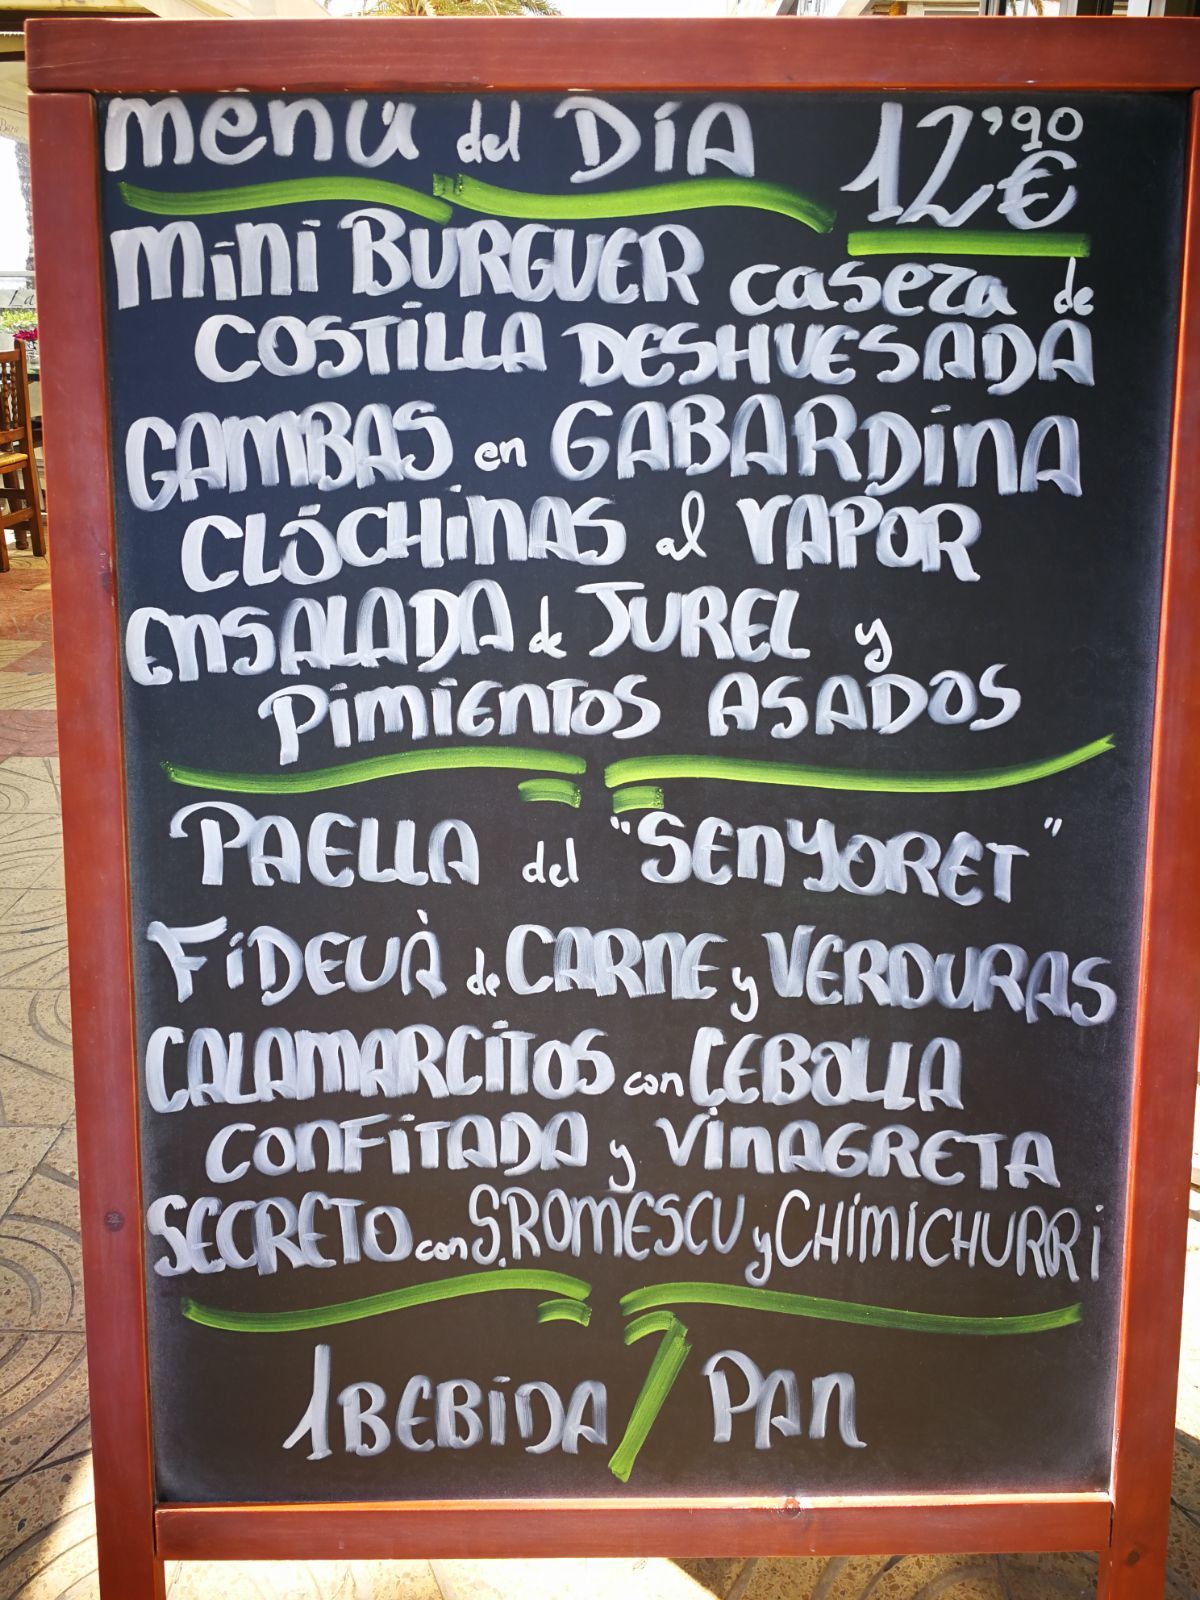 Menú del Día 12'90 €
Mini BURGUER casera de
COSTILLA DESHUESADA
GAMBAS en GABARDINA
CLÓCHINAS al VAPOR
ENSALADA de JUREL y
PIMIENTOS ASADOS
PAELLA del "SENYORET"
FIDEUÀ de CARNE y VERDURAS
CALAMARCITOS con CEBOLLA
CONFITADA y VINAGRETA
SECRETO con S.ROMESCU y CHIMICHURRI
1 BEBIDA / PAN